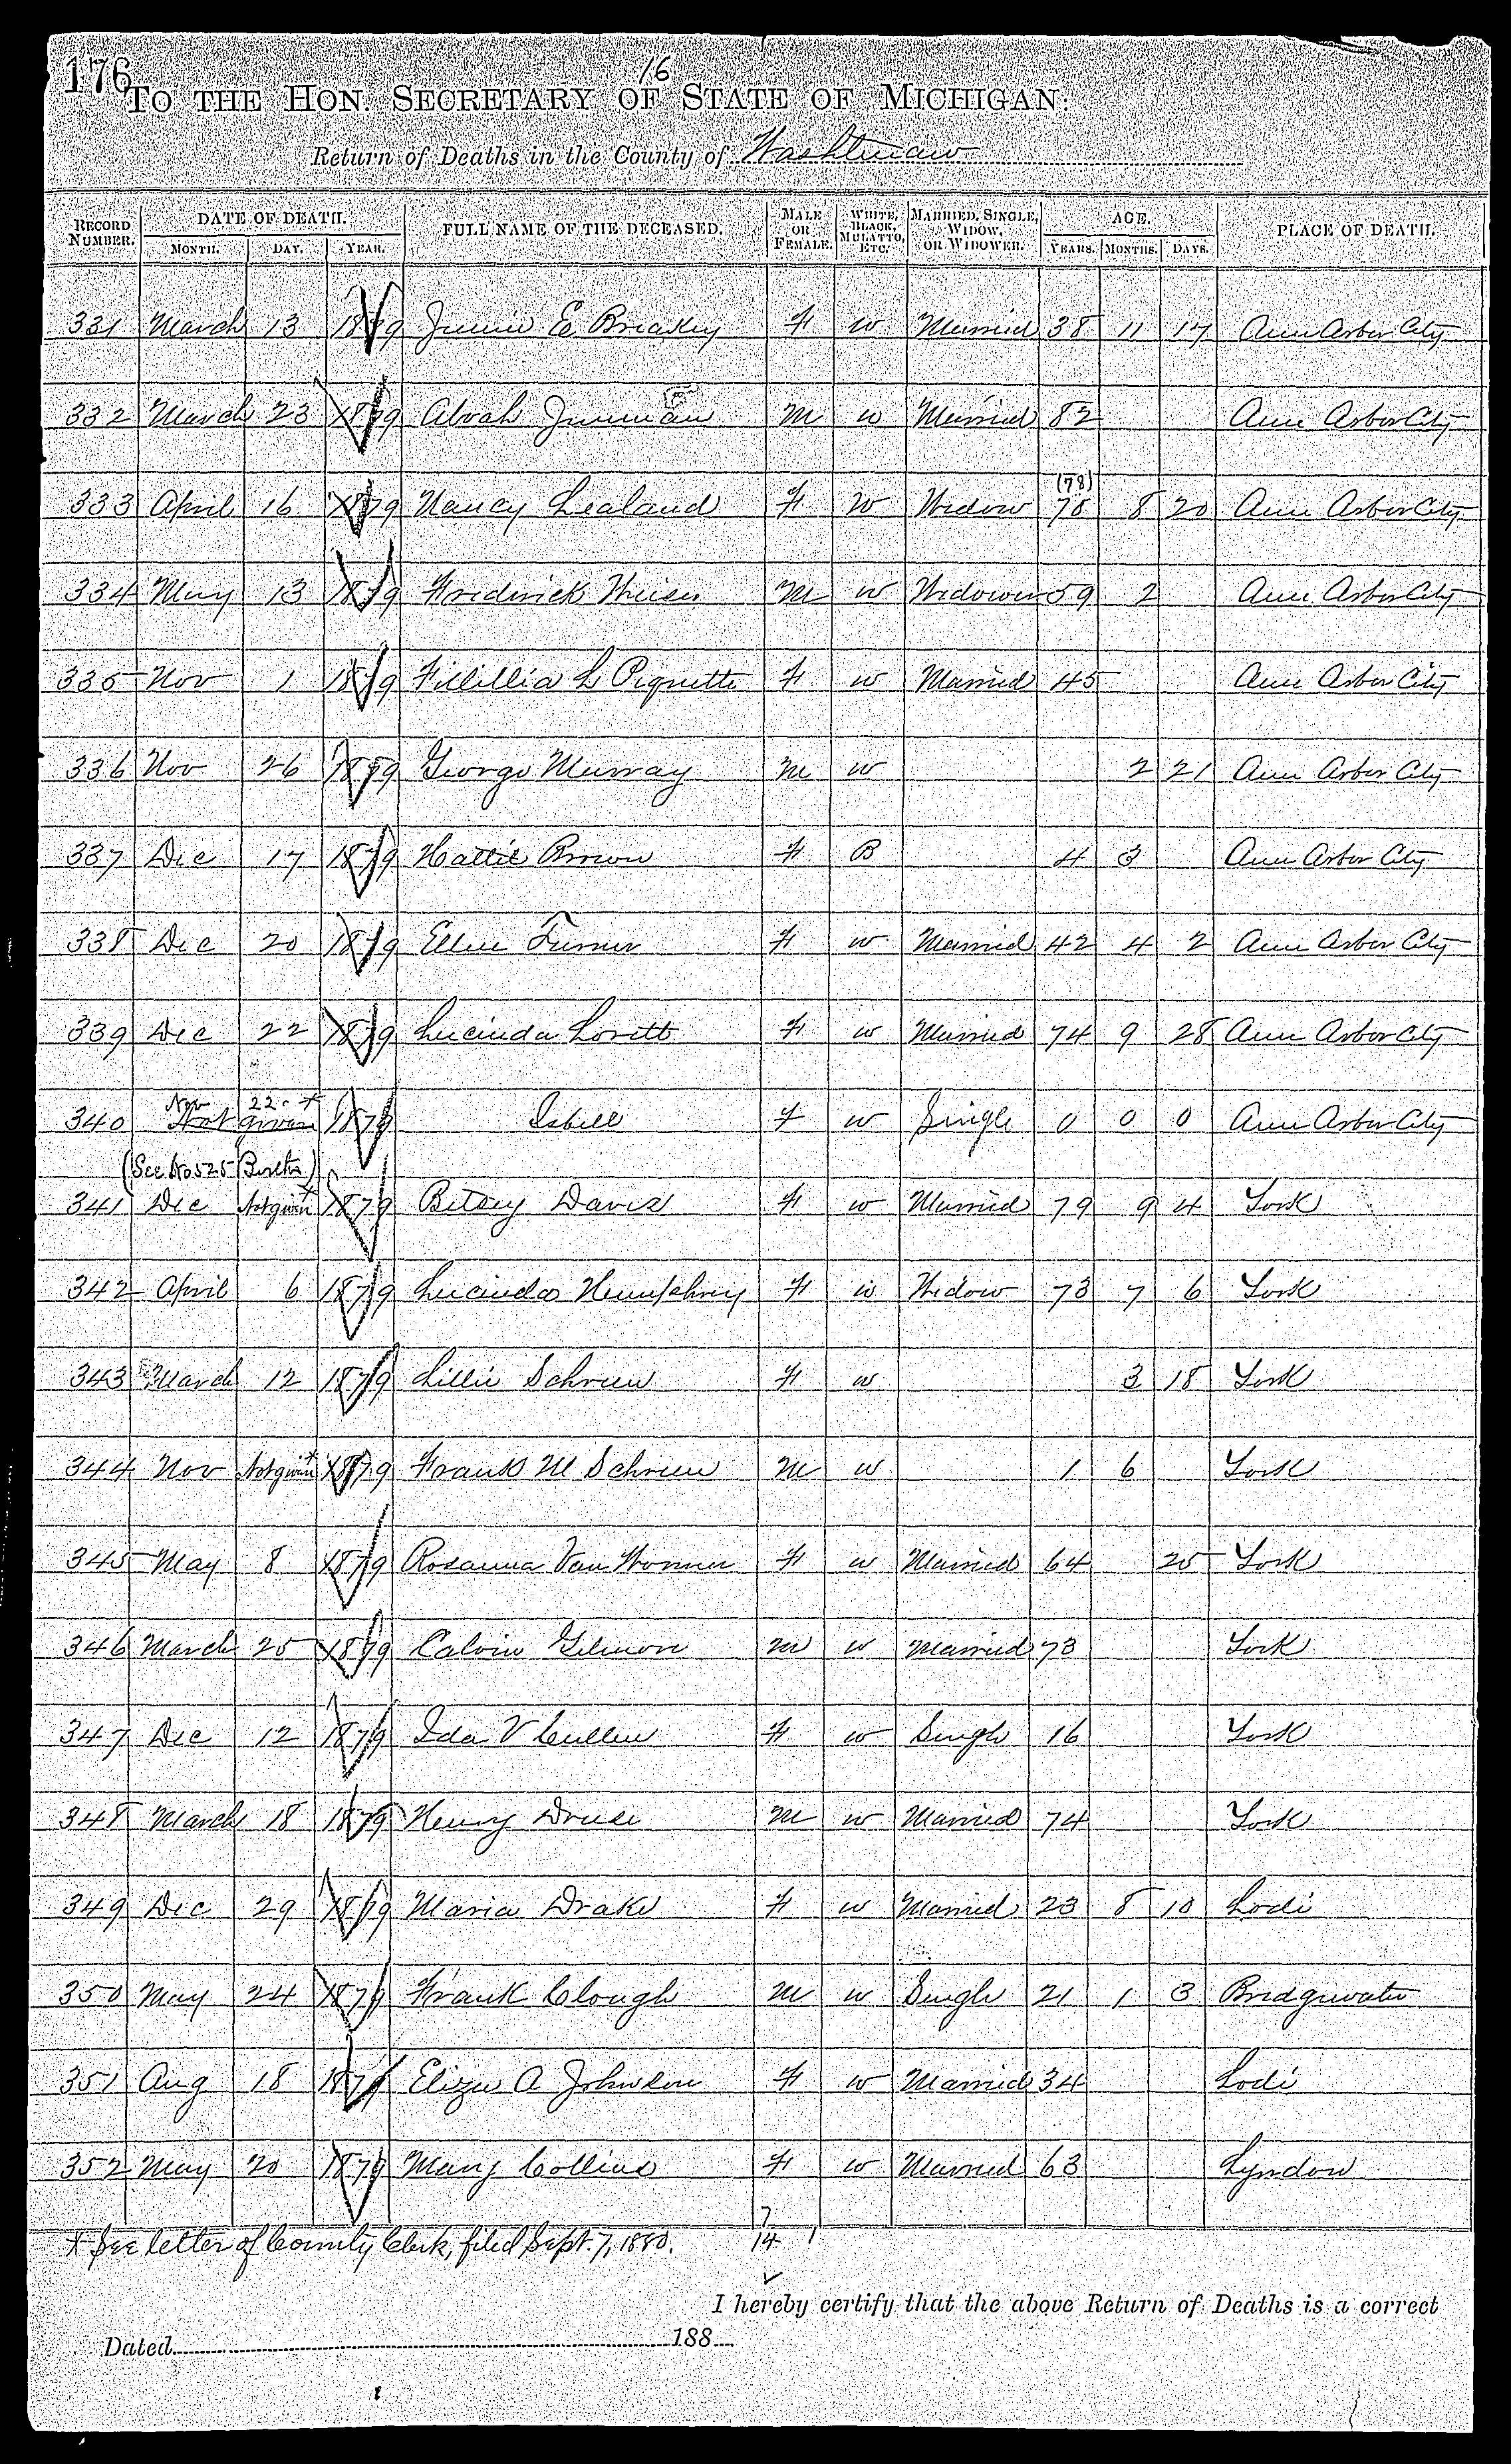 176
16
TO THE HON. SECRETARY OF STATE OF MICHIGAN:
Return of Deaths in the County of Washtenaw
RECORD NUMBER. DATE OF DEATH. MONTH. DAY. YEAR. FULL NAME OF THE DECEASED. MALE OR FEMALE. WHITE, BLACK, MULATTO, ETC. MARRIED, SINGLE, WIDOW, OR WIDOWER. AGE. YEARS. MONTHS. DAYS. PLACE OF DEATH.
331 March 13 1879 Jennie E Breakey F w Married 38 11 17 Ann Arbor City
332 March 23 1879 Alvah M w Married 82 Ann Arbor City
(78)
333 April 16 1879 Nancy Lealand F W Widow 78 8 20 Ann Arbor City
334 May 13 1879 Frederick M w Widower 59 2 Ann Arbor City
335 Nov 1 1879 L Piquette F w Married 45 Ann Arbor City
336 Nov 26 1879 George Murray M w 2 21 Ann Arbor City
337 Dec 17 1879 Hattie Brown F B 4 3 Ann Arbor City
338 Dec 20 1879 Ellen Turner F w Married 42 4 2 Ann Arbor City
339 Dec 22 1879 Lucinda Lovett F w Married 74 9 28 Ann Arbor City
Nov 22. +
340 Not given 1879 Isbell F w Single 0 0 0 Ann Arbor City
(See No 525 Births)
341 Dec Not given + 1879 Betsey Davis F w Married 79 9 4 York
342 April 6 1879 Lucinda Humphrey F w Widow 73 7 6 York
343 March 12 1879 Lillie F w 3 18 York
344 Nov Not given + 1879 Frank M M w 1 6 York
345 May 8 1879 Rosanna Van Wormer F w Married 64 25 York
346 March 25 1879 Calvin M w Married 73 York
347 Dec 12 1879 Ida V Cullen F w Single 16 York
348 March 18 1879 Henry Druse M w Married 74 York
349 Dec 29 1879 Maria Drake F w Married 23 8 10 Lodi
350 May 24 1879 Frank Clough M w Single 21 1 3 Bridgewater
351 Aug 18 1879 Eliza A Johnson F w Married 34 Lodi
352 May 20 1879 Mary Collins F w Married 63 Lyndon
+ See letter of County Clerk, filed Sept. 7, 1880.
7
14 1
I hereby certify that the above Return of Deaths is a correct
Dated 188